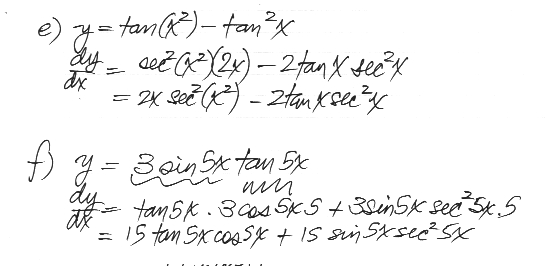 e) y = tan(x²) - tan²x
dy/dx = sec²(x²)(2x) - 2tan x sec²x
= 2x sec²(x²) - 2tan x sec²x
f) y = 3 sin 5x tan 5x
dy/dx = tan 5x . 3cos 5x 5 + 3sin 5x sec² 5x . 5
= 15 tan 5x cos 5x + 15 sin 5x sec² 5x